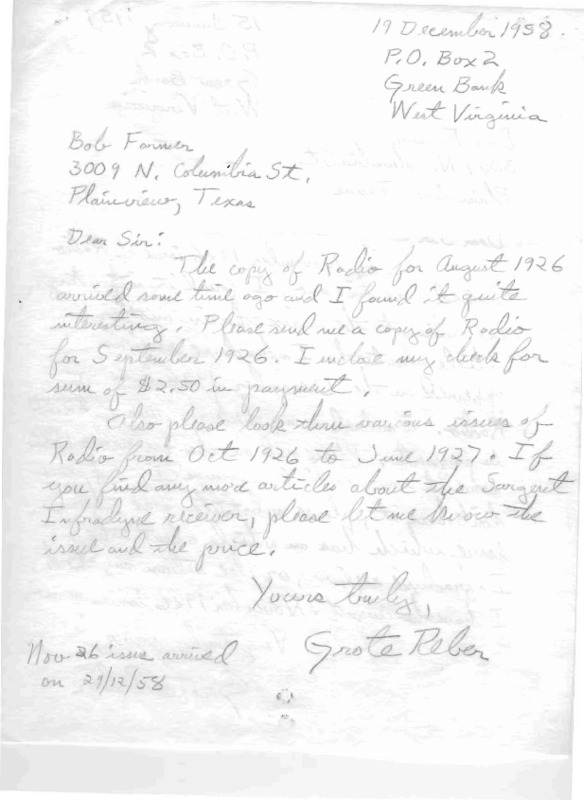 19 December 1958.
P.O. Box 2
Green Bank
West Virginia
Bob Farmer
3009 N. Columbia St,
Plainview, Texas
Dear Sir:
The copy of Radio for August 1926
arrived some time ago and I found it quite
interesting. Please send me a copy of Radio
for September 1926. I inclose my check for
sum of $2.50 in payment.
Also please look thru various issues of
Radio from Oct 1926 to June 1927. If
you find any more articles about the Sargent
Infradyne receiver, please let me know the
issue and the price.
Yours truly,
Grote Reber
Nov 26 issue arrived
on 29/12/58